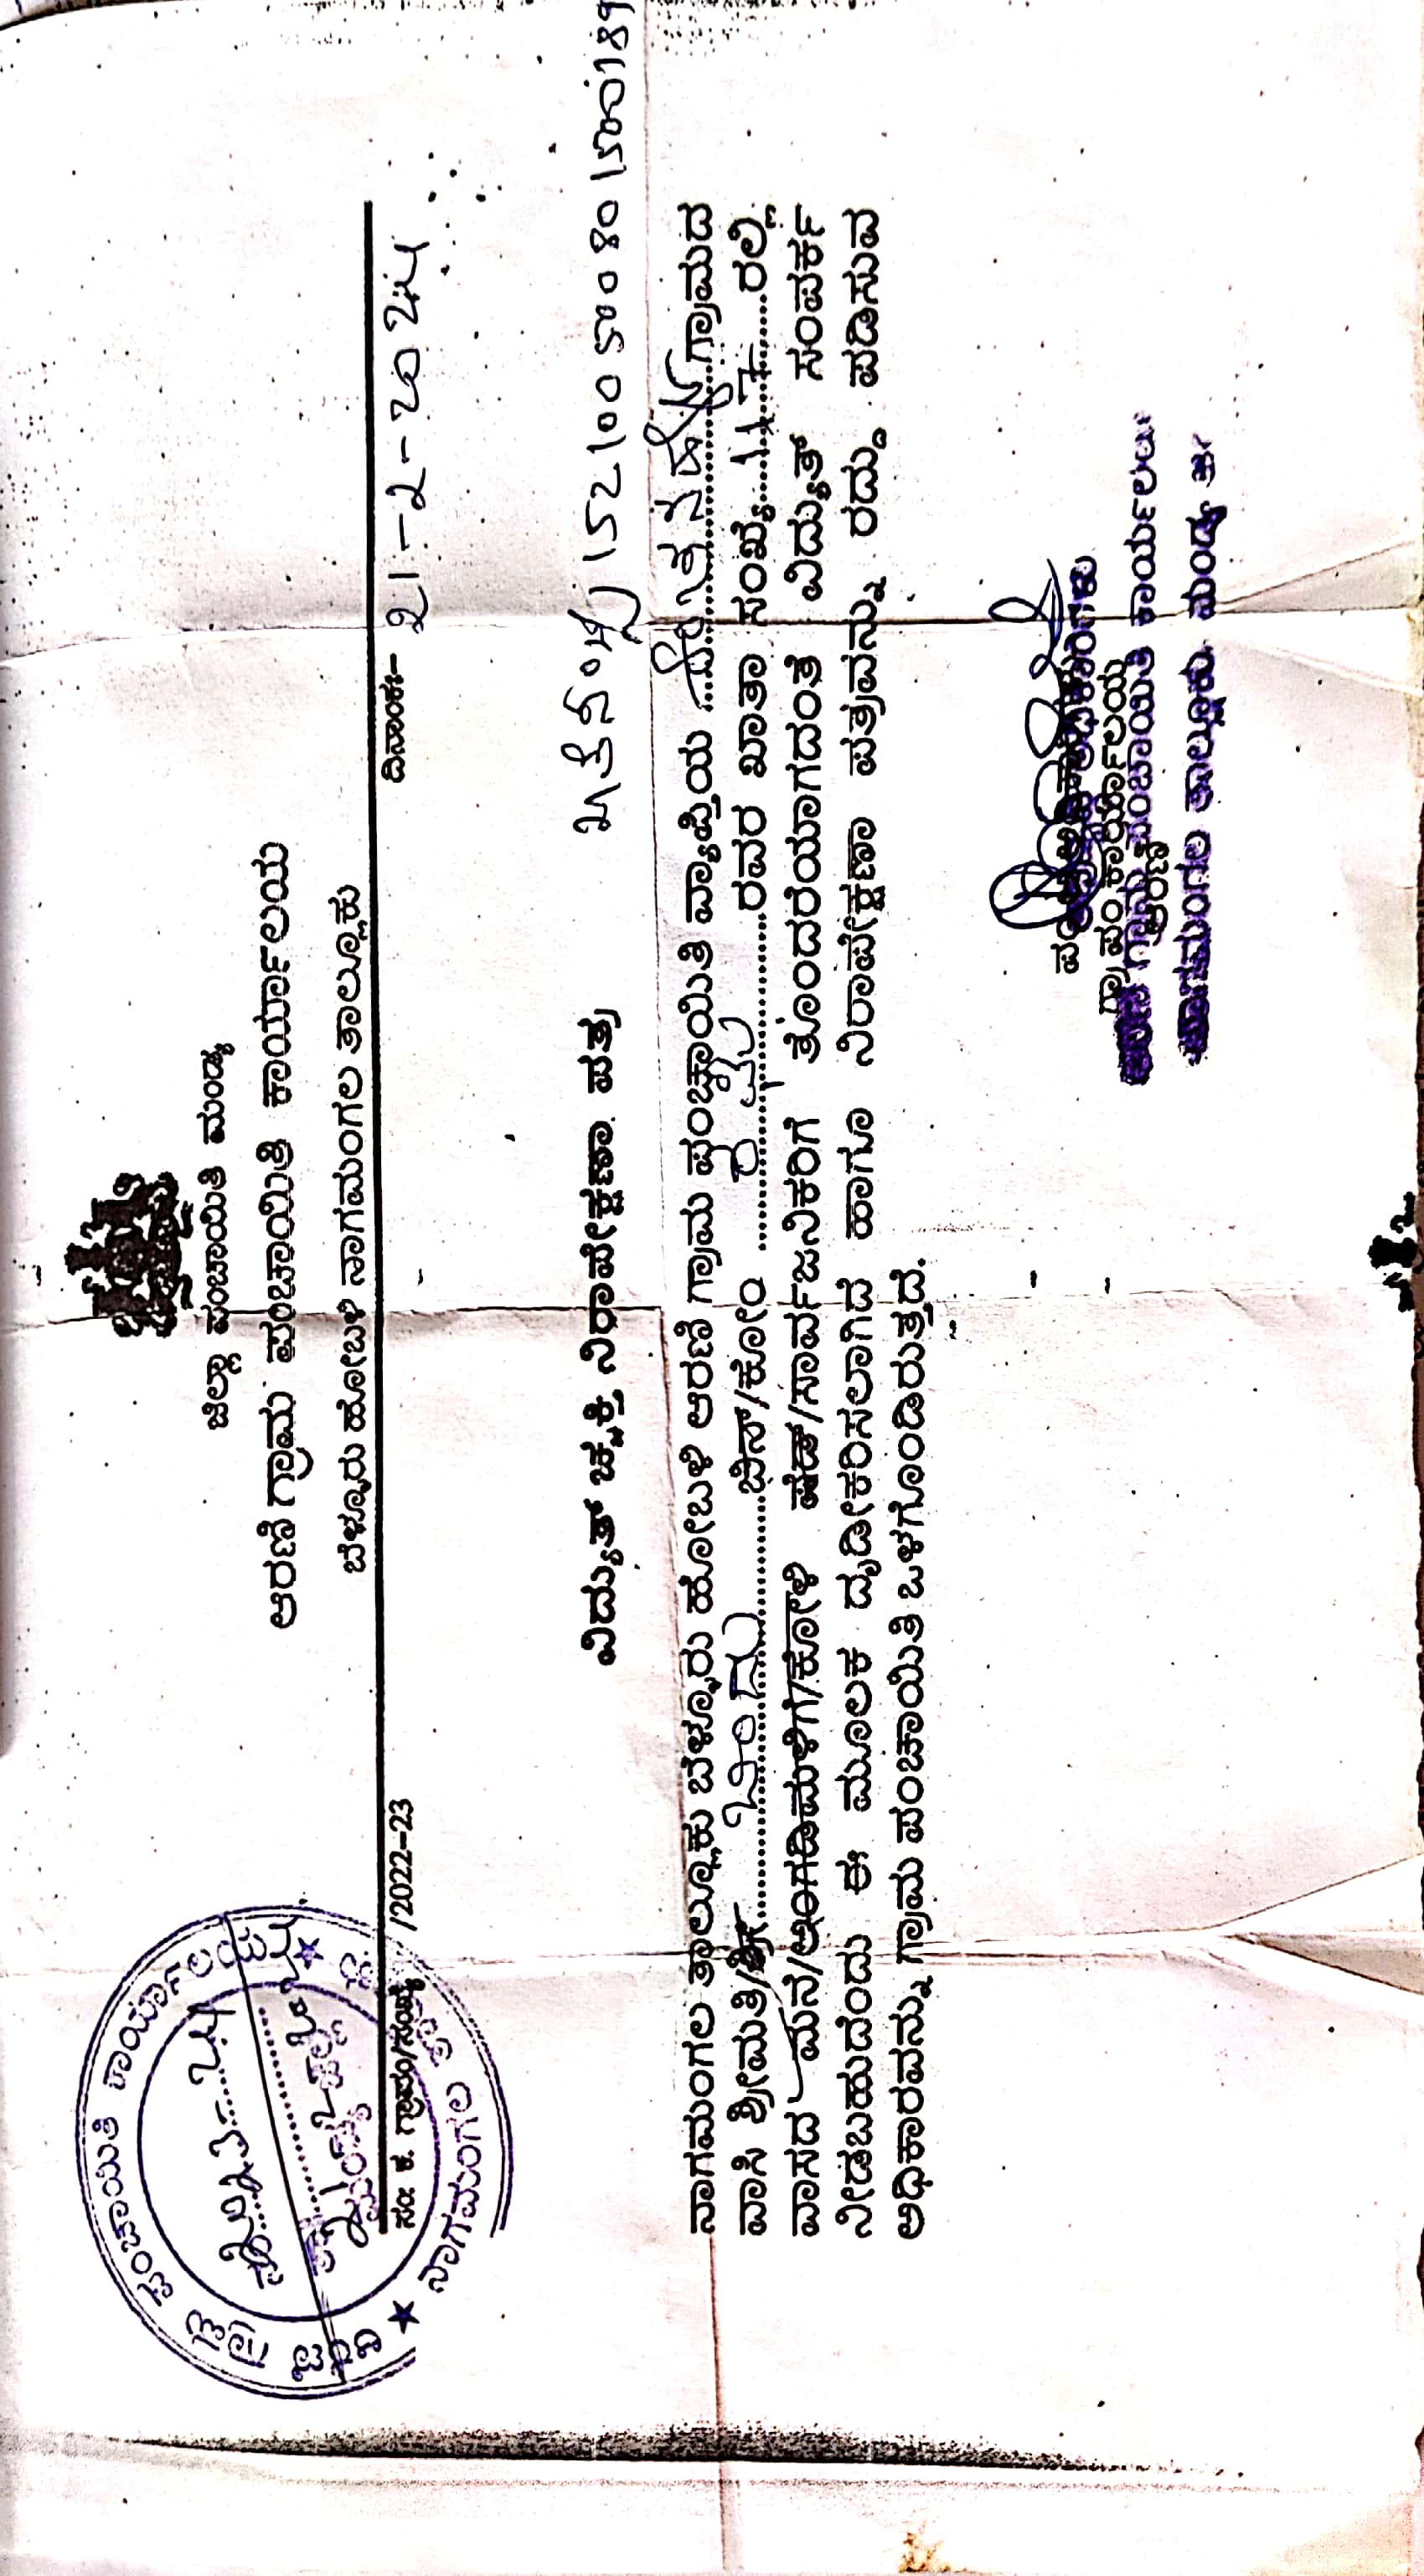 ಜಿಲ್ಲಾ ಪಂಚಾಯಿತಿ ಮಂಡ್ಯ
ಆರಣಿ ಗ್ರಾಮ ಪಂಚಾಯಿತಿ ಕಾರ್ಯಾಲಯ
ಬೆಳ್ಳೂರು ಹೋಬಳಿ ನಾಗಮಂಗಲ ತಾಲ್ಲೂಕು
ಸಂಃ ಕ. ಗ್ರಾಪಂ/ಸಂಖ್ಯೆ /2022-23 ದಿನಾಂಕಃ- 21-2-2024
ವಿದ್ಯುತ್ ಚ್ಛಕ್ತಿ ನಿರಾಪೇಕ್ಷಣಾ ಪತ್ರ 152100500801500189
ನಾಗಮಂಗಲ ತಾಲ್ಲೂಕು ಬೆಳ್ಳೂರು ಹೋಬಳಿ ಆರಣಿ ಗ್ರಾಮ ಪಂಚಾಯಿತಿ ವ್ಯಾಪ್ತಿಯ ಗ್ರಾಮದ
ವಾಸಿ ಶ್ರೀಮತಿ/ಶ್ರೀ ಬಿಂದು ಬಿನ್/ಕೋಂ ರವರ ಖಾತಾ ಸಂಖ್ಯೆ ರಲ್ಲಿ
ವಾಸದ ಮನೆ/ಅಂಗಡಿಮಳಿಗೆ/ಕೋಳಿ ಷೆಡ್/ಸಾರ್ವಜನಿಕರಿಗೆ ತೊಂದರೆಯಾಗದಂತೆ ವಿದ್ಯುತ್ ಸಂಪರ್ಕ
ನೀಡಬಹುದೆಂದು ಈ ಮೂಲಕ ದೃಡೀಕರಿಸಲಾಗಿದೆ ಹಾಗೂ ನಿರಾಪೇಕ್ಷಣಾ ಪತ್ರವನ್ನು ರದ್ದು ಪಡಿಸುವ
ಅಧಿಕಾರವನ್ನು ಗ್ರಾಮ ಪಂಚಾಯಿತಿ ಒಳಗೊಂಡಿರುತ್ತದೆ.
ಗ್ರಾ ಪಂ ಕಾರ್ಯಾಲಯ
ಆರಣಿ
ಗ್ರಾಮ ಪಂಚಾಯಿತಿ ಕಾರ್ಯಾಲಯ
ನಾಗಮಂಗಲ ತಾಲ್ಲೂಕು ಮಂಡ್ಯ ಜಿ.
ಆರಣಿ ಗ್ರಾಮ ಪಂಚಾಯಿತಿ ಕಾರ್ಯಾಲಯ
ನಾಗಮಂಗಲ